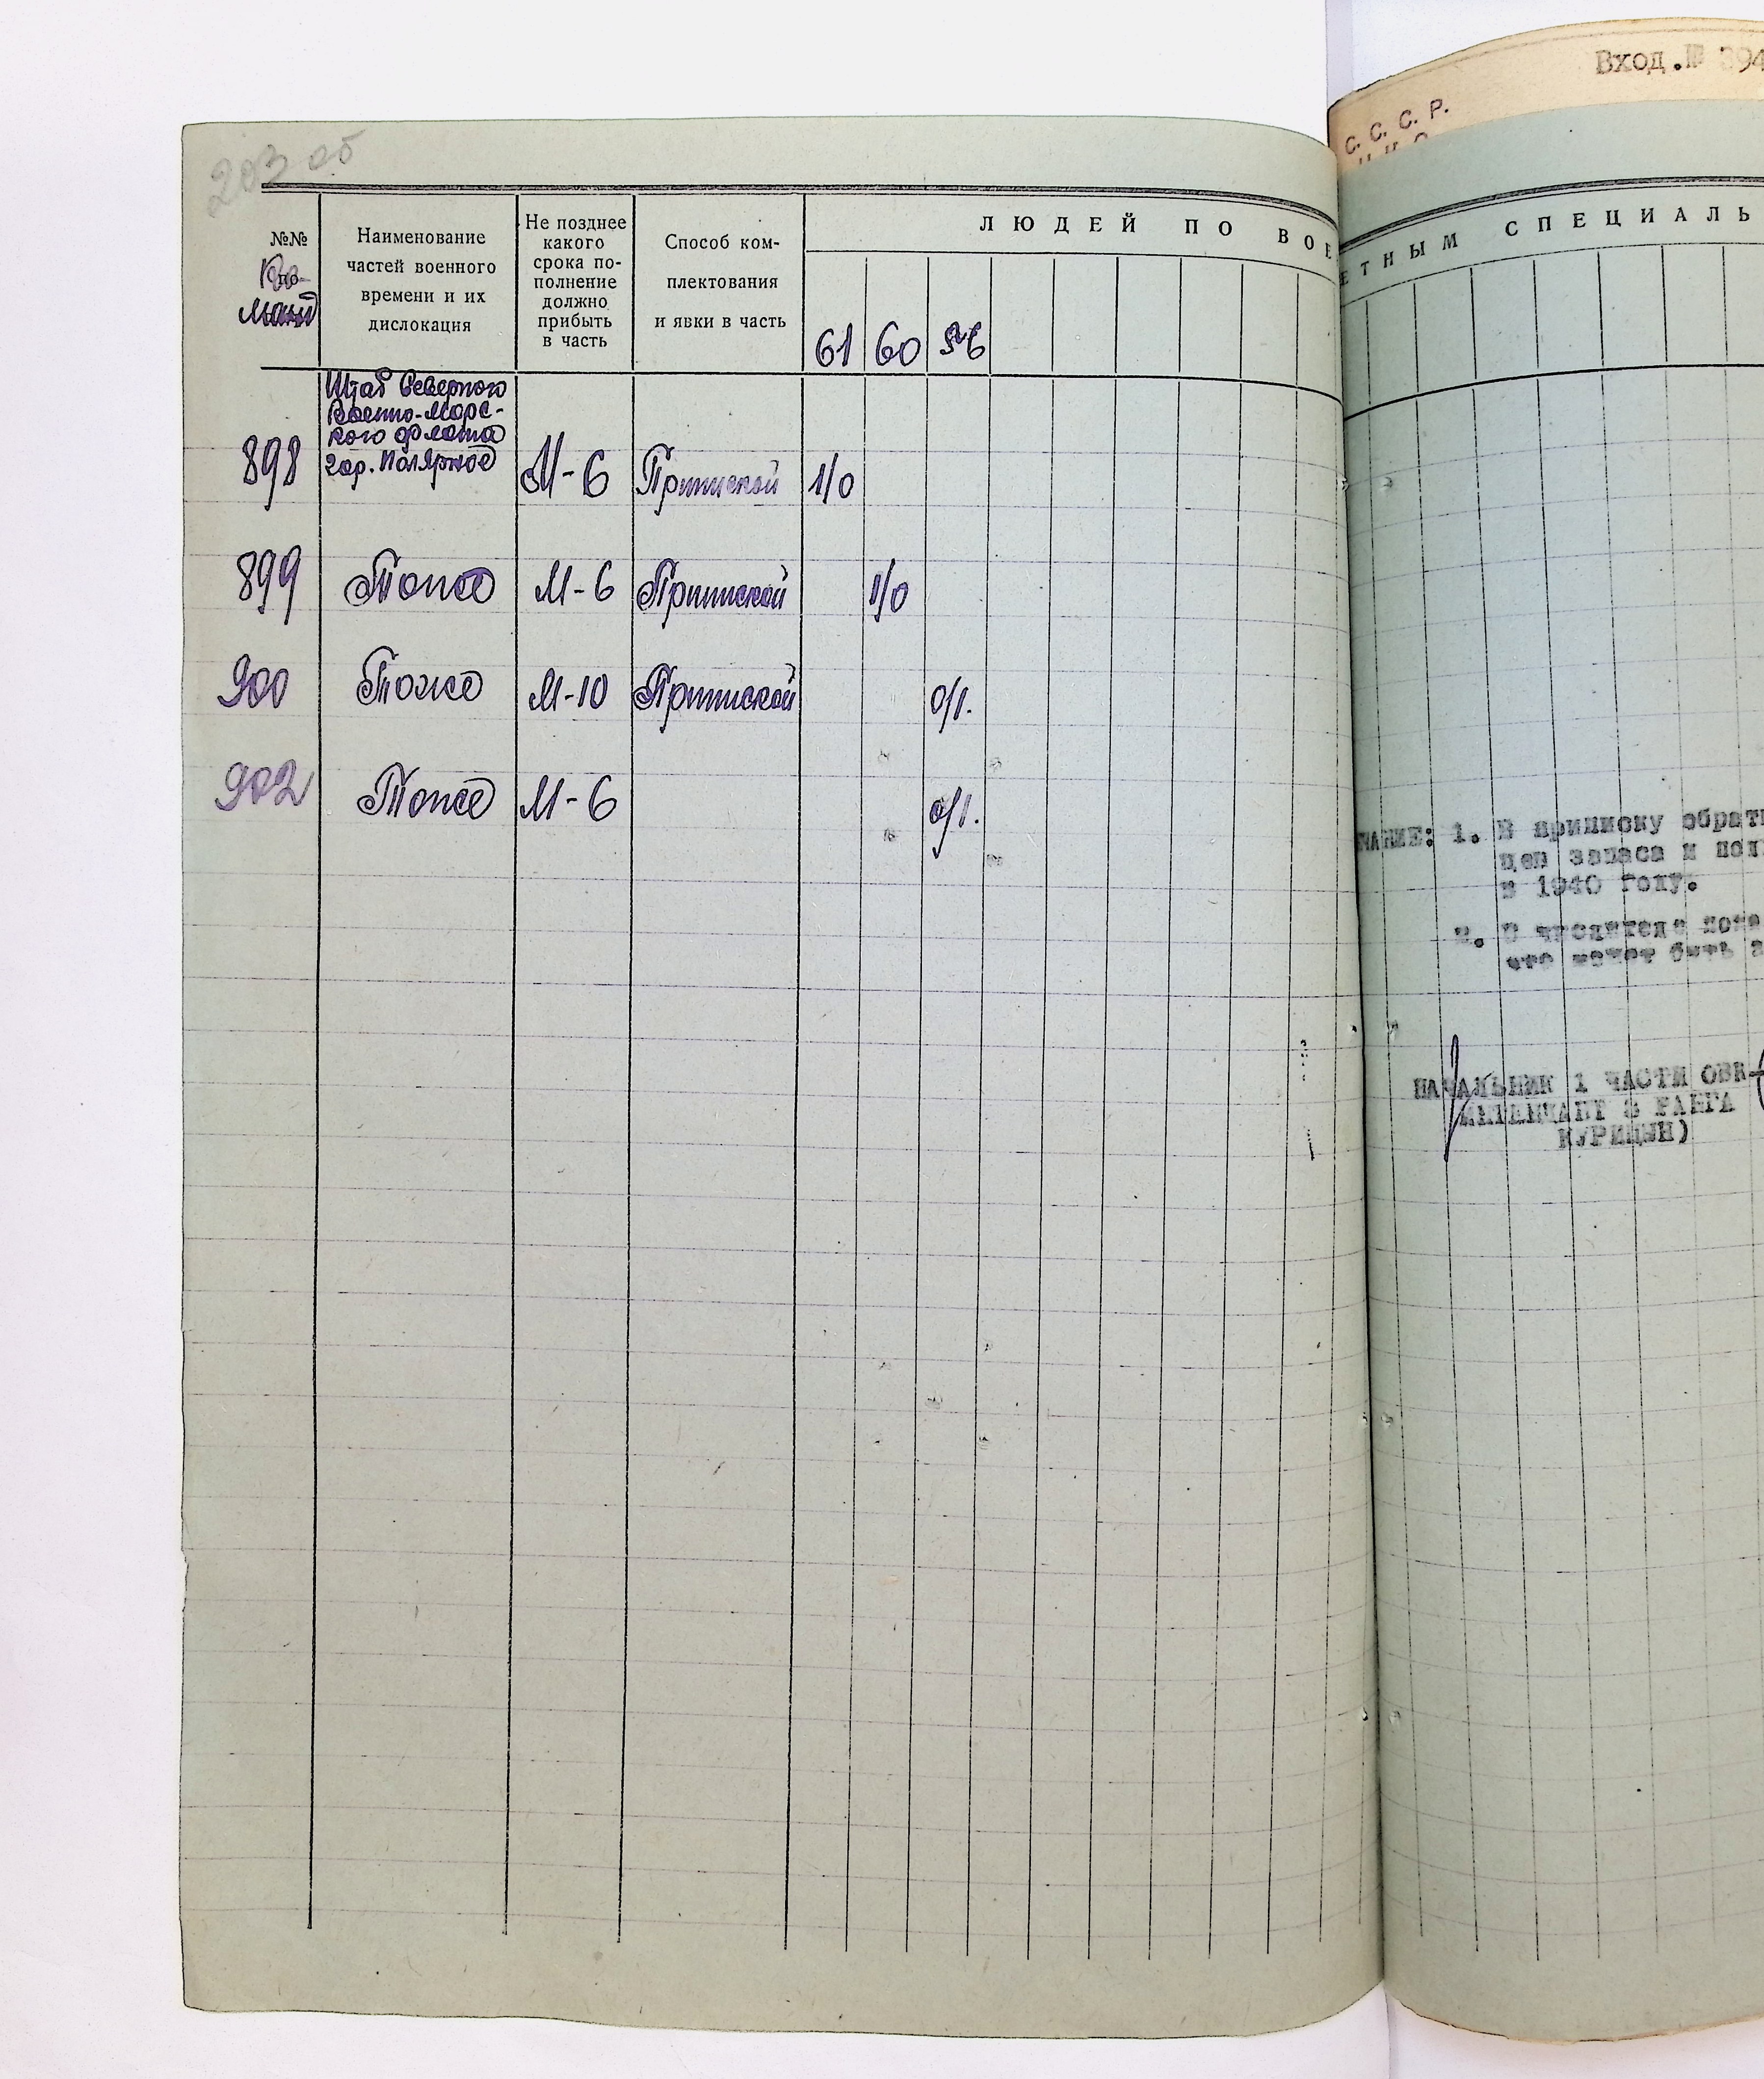 203 об
№№
по
Ко-
манд
Наименование
частей военного
времени и их
дислокация
Не позднее
какого
срока по-
полнение
должно
прибыть
в часть
Способ ком-
плектования
и явки в часть
ЛЮДЕЙ ПО ВОЕ
61 60
898 Штаб Северного
Военно-Морс-
кого флота
гор. Полярное М-6 Приписной 1/0
899 Тоже М-6 Приписной 1/0
900 Тоже М-10 Приписной 0/1.
902 Тоже М-6 0/1.
Вход.№ 394
С. С. С. Р.
ЕТНЫМ СПЕЦИАЛЬ
ЧАНИЕ: 1. В приписку обрат
цев запаса и
в 1940 году.
2. В числителе пока
что может быть
НАЧАЛЬНИК 1 ЧАСТИ ОВК
ИНТЕНДАНТ 3 РАНГА
КУРИЦЫН)